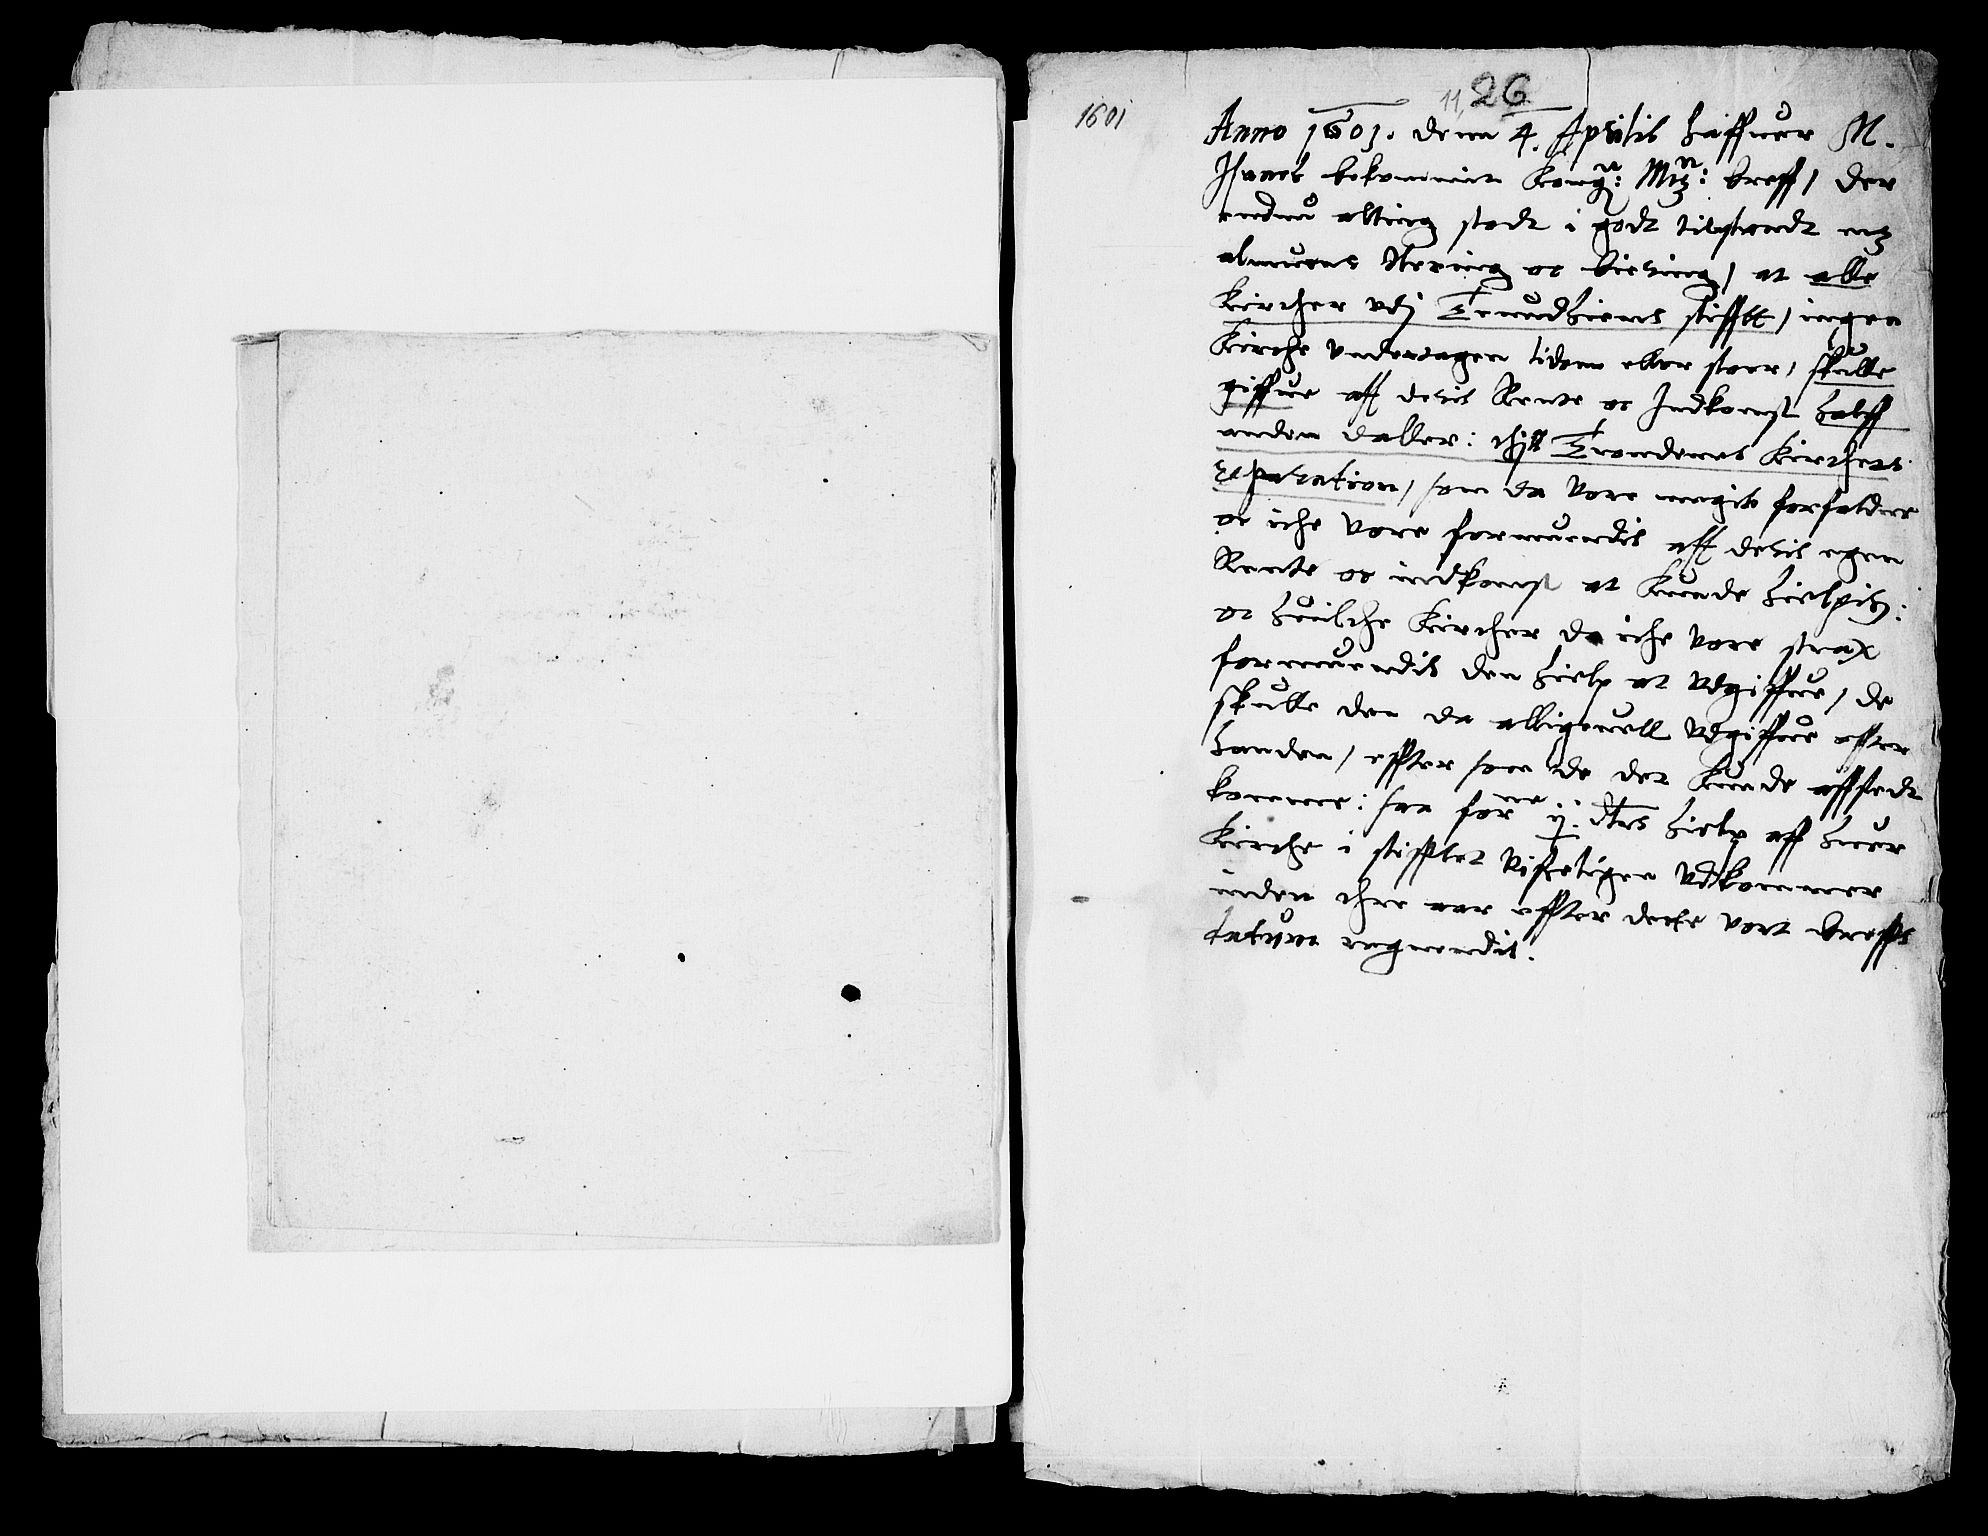 1601
11, 26
Anno 1601. denn 4. Aprilis haffuer M.
Isaach bekommit Kong: Mtz: breff, der
endnu alting stodt i godt tilstandt mz
almuens Nering oc biering, at alle
Kircher vdj Trundhiems stifftt, ingen
Kirche vndertagen liden eller stoer, skulle
giffue aff deris Rente oc Indkomst halff
anden daller: thill Trondenes Kirches
reparation, som da vore megit forfalden
oc iche vore formuendis aff deris egen
Rente oc indkomst at kunde hielpis:
oc huilche Kircher da iche vore strax
formuendis den hielp at vdgiffue, de
skulle den da alligeuell vdgiffue effter
handen, effter som de det kunde affstedt
komme: saa forne ij. dlrs hielp aff huer
Kirche i stifftet visseligen vdkommer
inden thre aar effter dette vort breffs
datum regnendis.